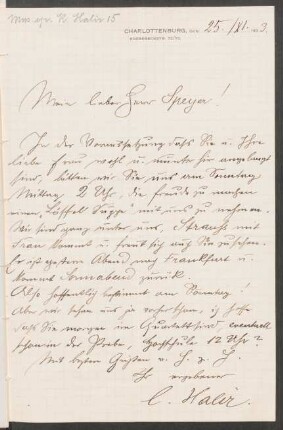 Mus. ep. K. Halir 15
CHARLOTTENBURG, den 25. /XI. 3.
Mein lieber Herr Speyer!
In der Voraussetzung daß Sie u. Ihre
liebe Frau wohl u. munter hier angelangt
sind, bitten wir Sie uns am Sonntag
Mittag 2 Uhr, die Freude zu machen
einen „Löffel Suppe" mit uns zu nehmen.
Wir sind ganz unter uns, Strauss mit
Frau kommt u. freut sich auf Sie zu sehen.
Er ist gestern Abend nach Frankfurt u.
kommt Sonnabend zurück.
Also hoffentlich bestimmt am Sonntag!
Aber wir sehen uns ja vorher schon, ich hoffe
daß Sie morgen im Quartett sind, eventuell
schon in der Probe, Hochschule 12 Uhr?
Mit besten Grüßen v. H. z. H.
Ihr ergebener
C. Halir.